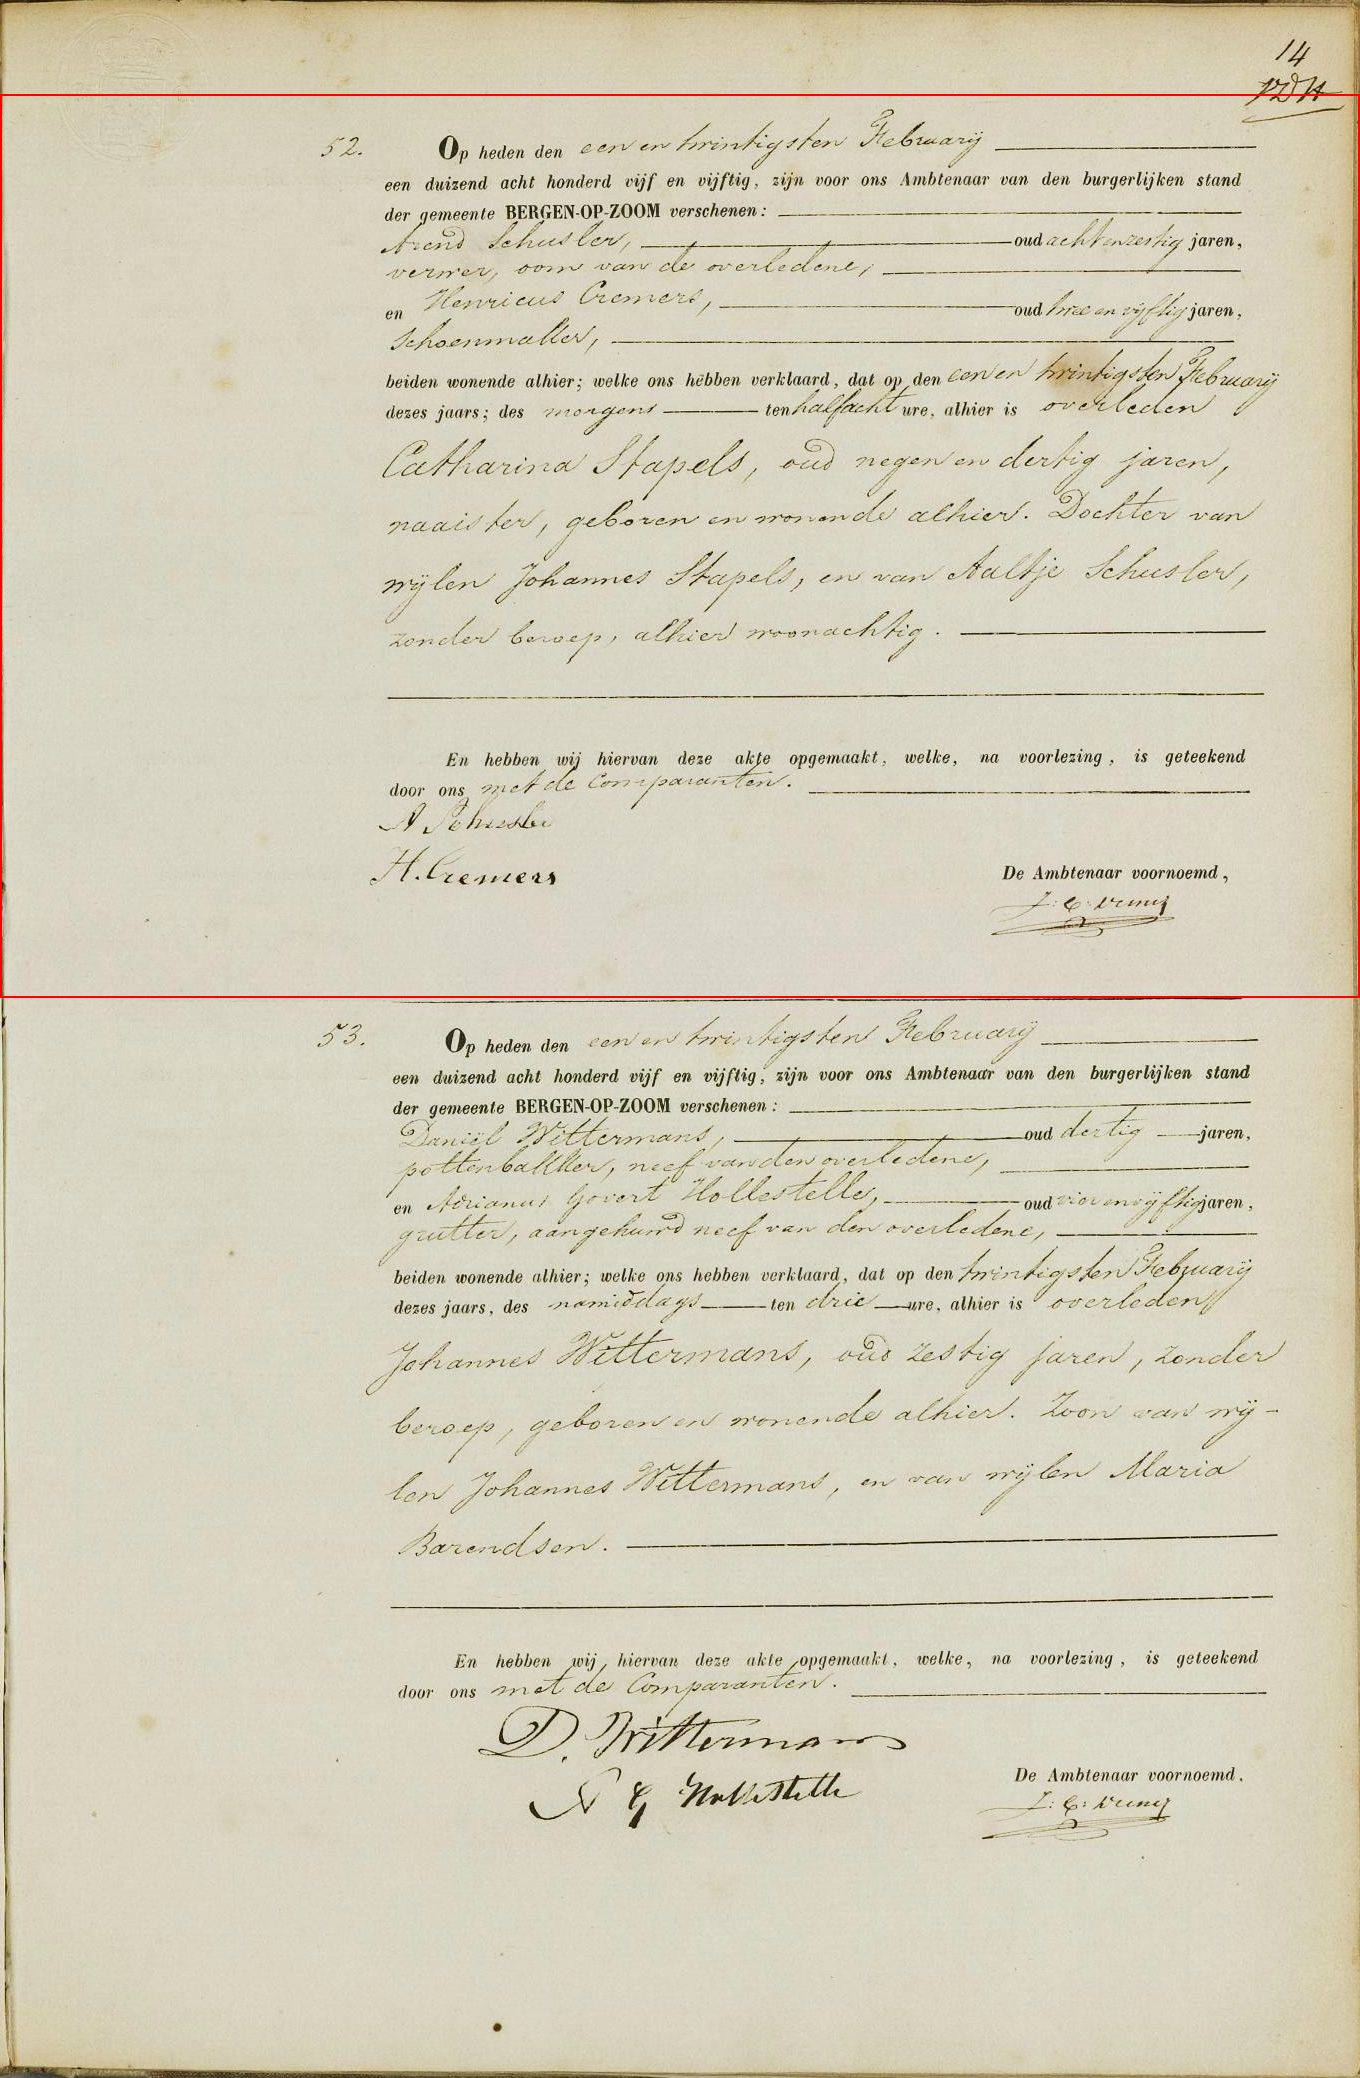 14
VDH
52. Op heden den een en twintigsten Februarij
een duizend acht honderd vijf en vijftig, zijn voor ons Ambtenaar van den burgerlijken stand
der gemeente BERGEN-OP-ZOOM verschenen:
Arend Schusler, oud acht en zestig jaren,
verwer, oom van de overledene,
en Henricus Cremers, oud twee en vijftig jaren,
schoenmakker,
beiden wonende alhier; welke ons hebben verklaard, dat op den een en twintigsten Februarij
dezes jaars; des morgens ten half acht ure, alhier is overleden
Catharina Stapels, oud negen en dertig jaren,
naaister, geboren en wonende alhier. Dochter van
wijlen Johannes Stapels, en van Aaltje Schusler,
zonder beroep, alhier woonachtig.
En hebben wij hiervan deze akte opgemaakt, welke, na voorlezing, is geteekend
door ons met de Comparanten.
A Schusler
H. Cremers
De Ambtenaar voornoemd,
53. Op heden den een en twintigsten Februarij
een duizend acht honderd vijf en vijftig, zijn voor ons Ambtenaar van den burgerlijken stand
der gemeente BERGEN-OP-ZOOM verschenen:
Daniël Wittermans, oud dertig jaren,
pottenbakker, neef van den overledene,
en Adrianus Govert Hollestelle, oud vier en vijftig jaren,
grutter, aangehuwd neef van den overledene,
beiden wonende alhier; welke ons hebben verklaard, dat op den twintigsten Februarij
dezes jaars, des namiddags ten drie ure, alhier is overleden
Johannes Wittermans, oud zestig jaren, zonder
beroep, geboren en wonende alhier. Zoon van wij-
len Johannes Wittermans, en van wijlen Maria
Barendsen.
En hebben wij hiervan deze akte opgemaakt, welke, na voorlezing, is geteekend
door ons met de Comparanten.
D. Wittermans
A G Hollestelle
De Ambtenaar voornoemd.